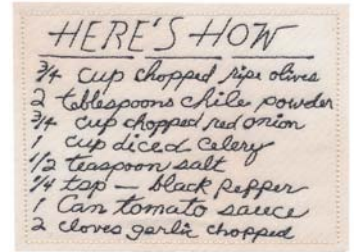 HERE'S HOW
3/4 cup chopped ripe olives
2 tablespoons chile powder
3/4 cup chopped red onion
1 cup diced celery
1/2 teaspoon salt
1/4 tsp — black pepper
1 Can tomato sauce
2 cloves garlic chopped